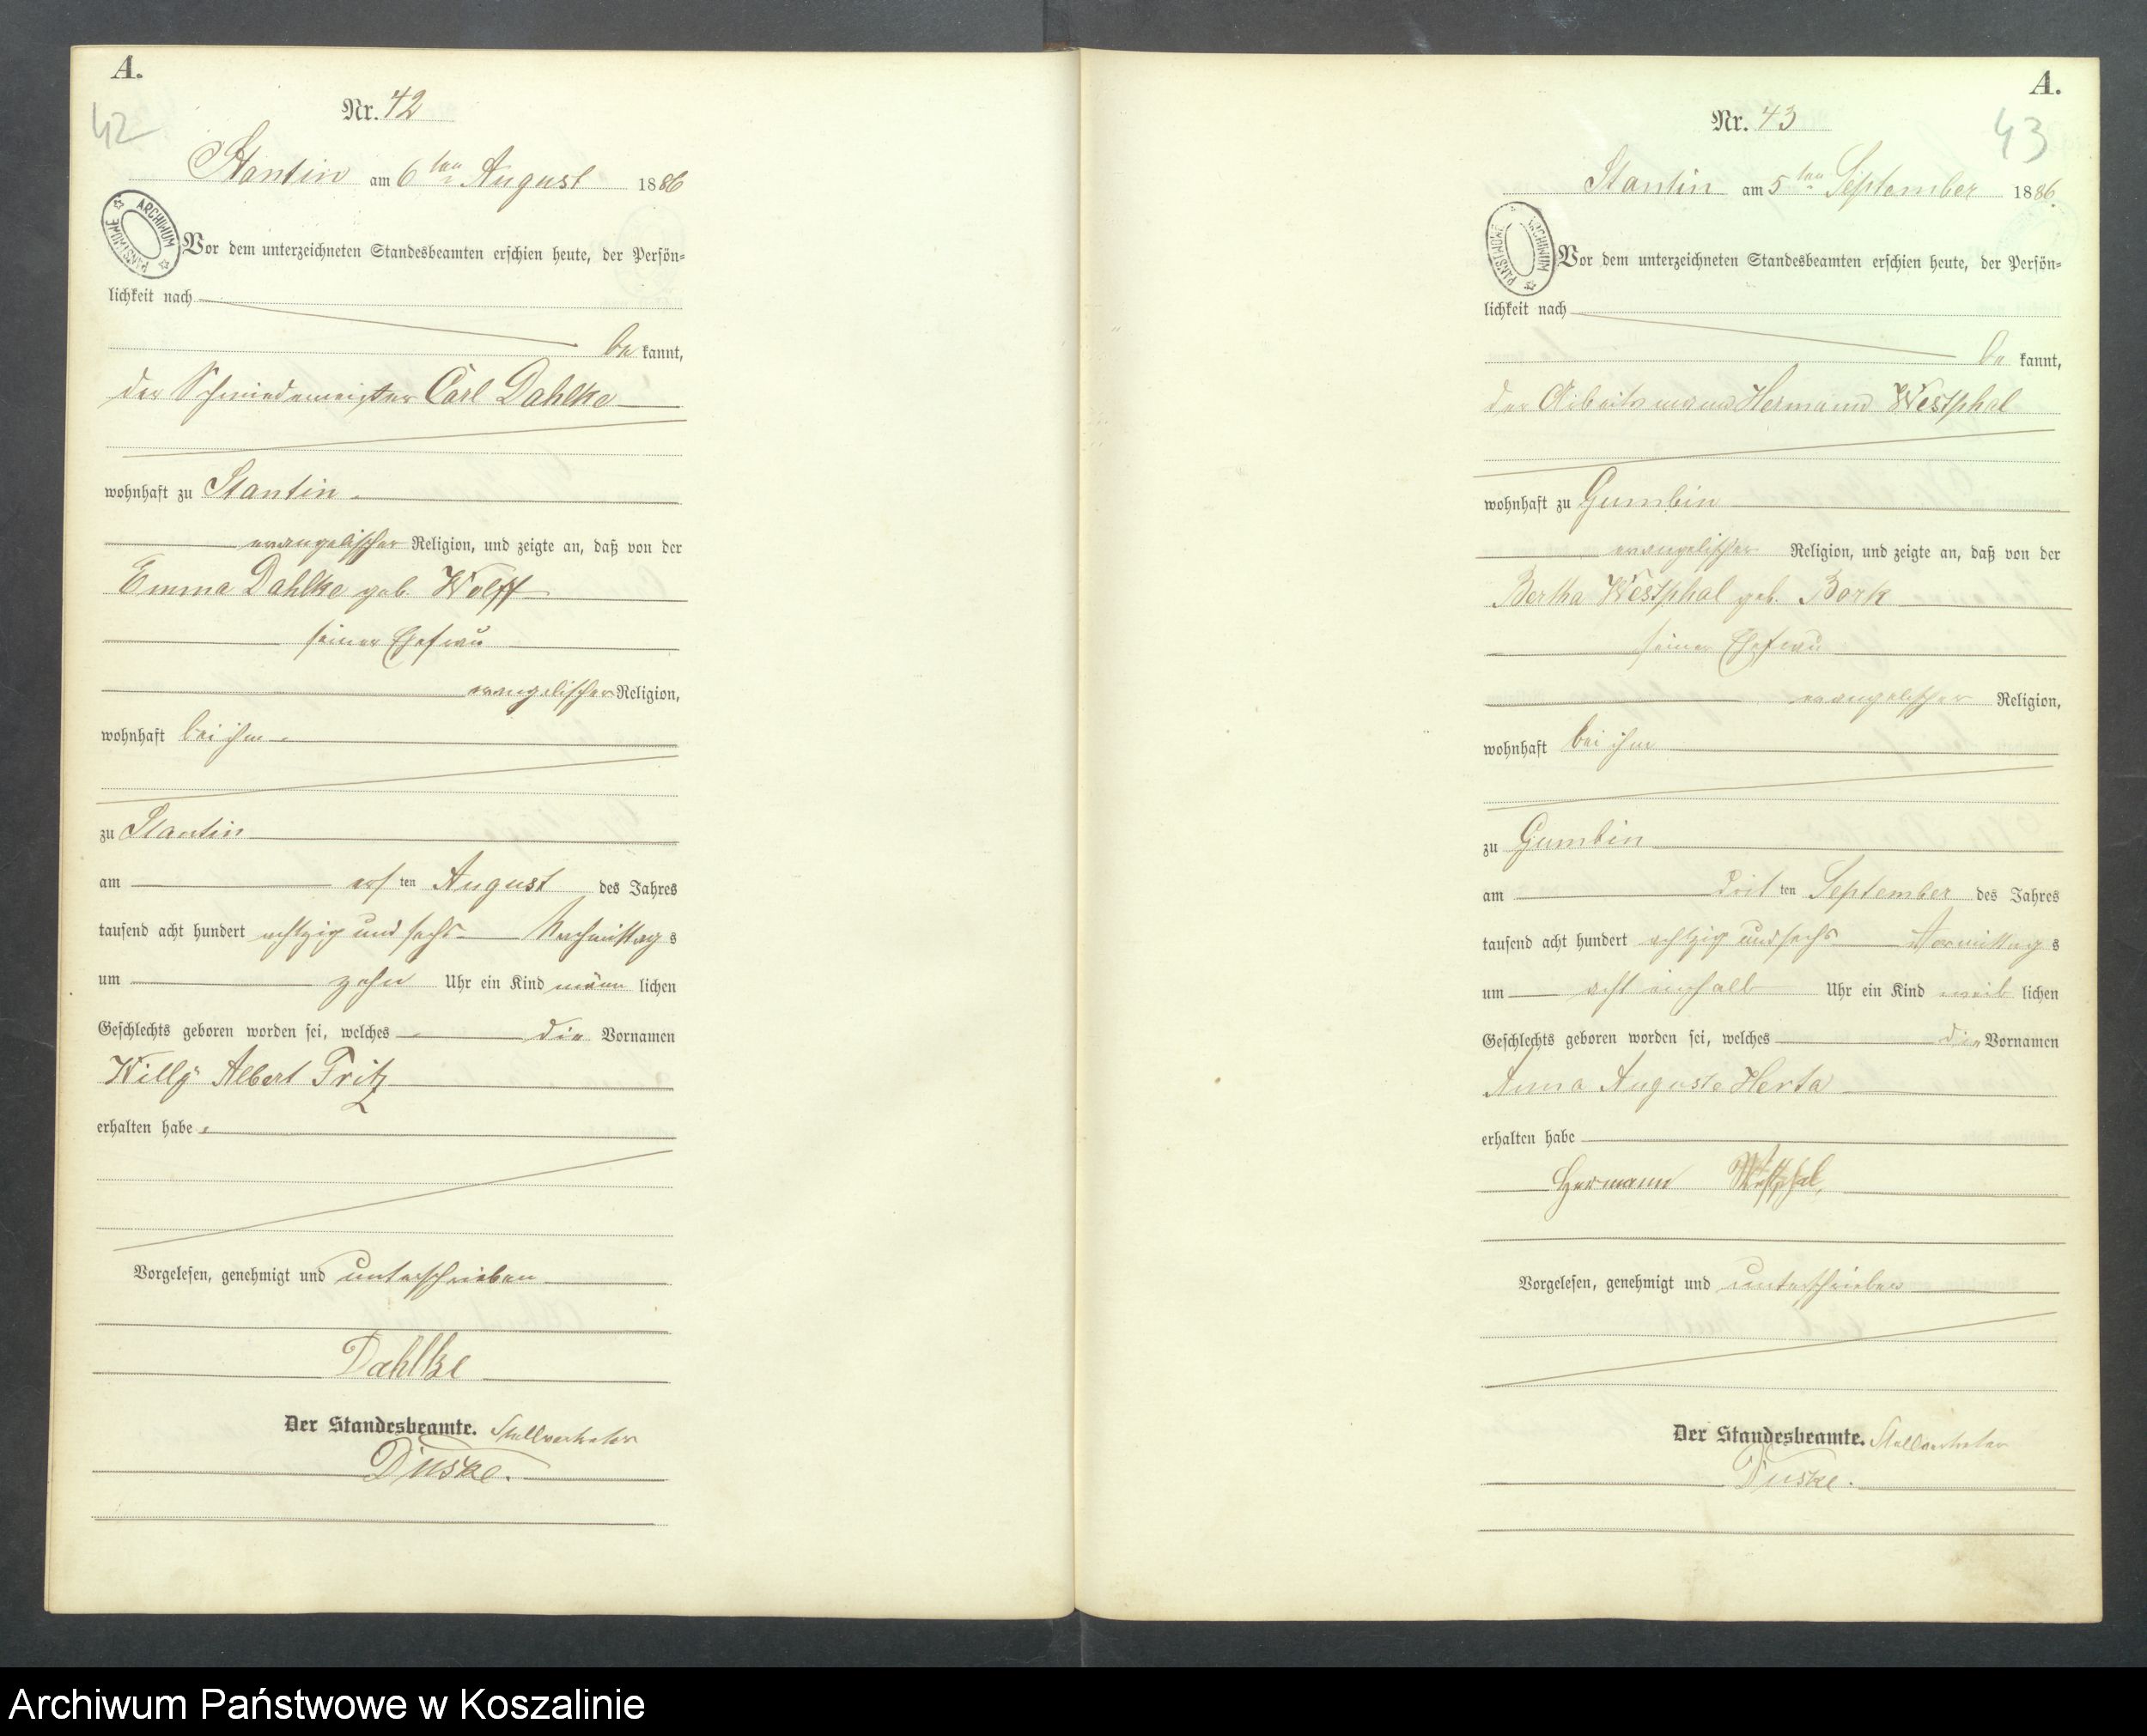 A.
42
Nr. 42
Stantin am 6ten August 1886
ARCHIWUM PAŃSTWOWE
Vor dem unterzeichneten Standesbeamten erschien heute, der Persön=
lichkeit nach
be kannt,
der Schmiedemeister Carl Dahlke
wohnhaft zu Stantin
evangelischer Religion, und zeigte an, daß von der
Emma Dahlke geb. Wolff
seiner Ehefrau
evangelischer Religion,
wohnhaft bei ihm
zu Stantin
am ersten August des Jahres
tausend acht hundert achtzig und sechs Nachmittag s
um zehn Uhr ein Kind männ lichen
Geschlechts geboren worden sei, welches die Vornamen
Willy Albert Fritz
erhalten habe.
Vorgelesen, genehmigt und unterschrieben
Dahlke
Der Standesbeamte. Stellvertreter
Duske.
A.
43
Nr. 43
Stantin am 5ten September 1886.
ARCHIWUM PAŃSTWOWE
Vor dem unterzeichneten Standesbeamten erschien heute, der Persön=
lichkeit nach
be kannt,
der Arbeitsmann Hermann Westphal
wohnhaft zu Gumbin
evangelischer Religion, und zeigte an, daß von der
Bertha Westphal geb. Bork
seiner Ehefrau
evangelischer Religion,
wohnhaft bei ihm
zu Gumbin
am drit ten September des Jahres
tausend acht hundert achtzig und sechs Vormittag s
um acht einhalb Uhr ein Kind weib lichen
Geschlechts geboren worden sei, welches die Vornamen
Anna Auguste Herta
erhalten habe
Hermann Westphal,
Vorgelesen, genehmigt und unterschrieben
Der Standesbeamte. Stellvertreter
Duske.
Archiwum Państwowe w Koszalinie